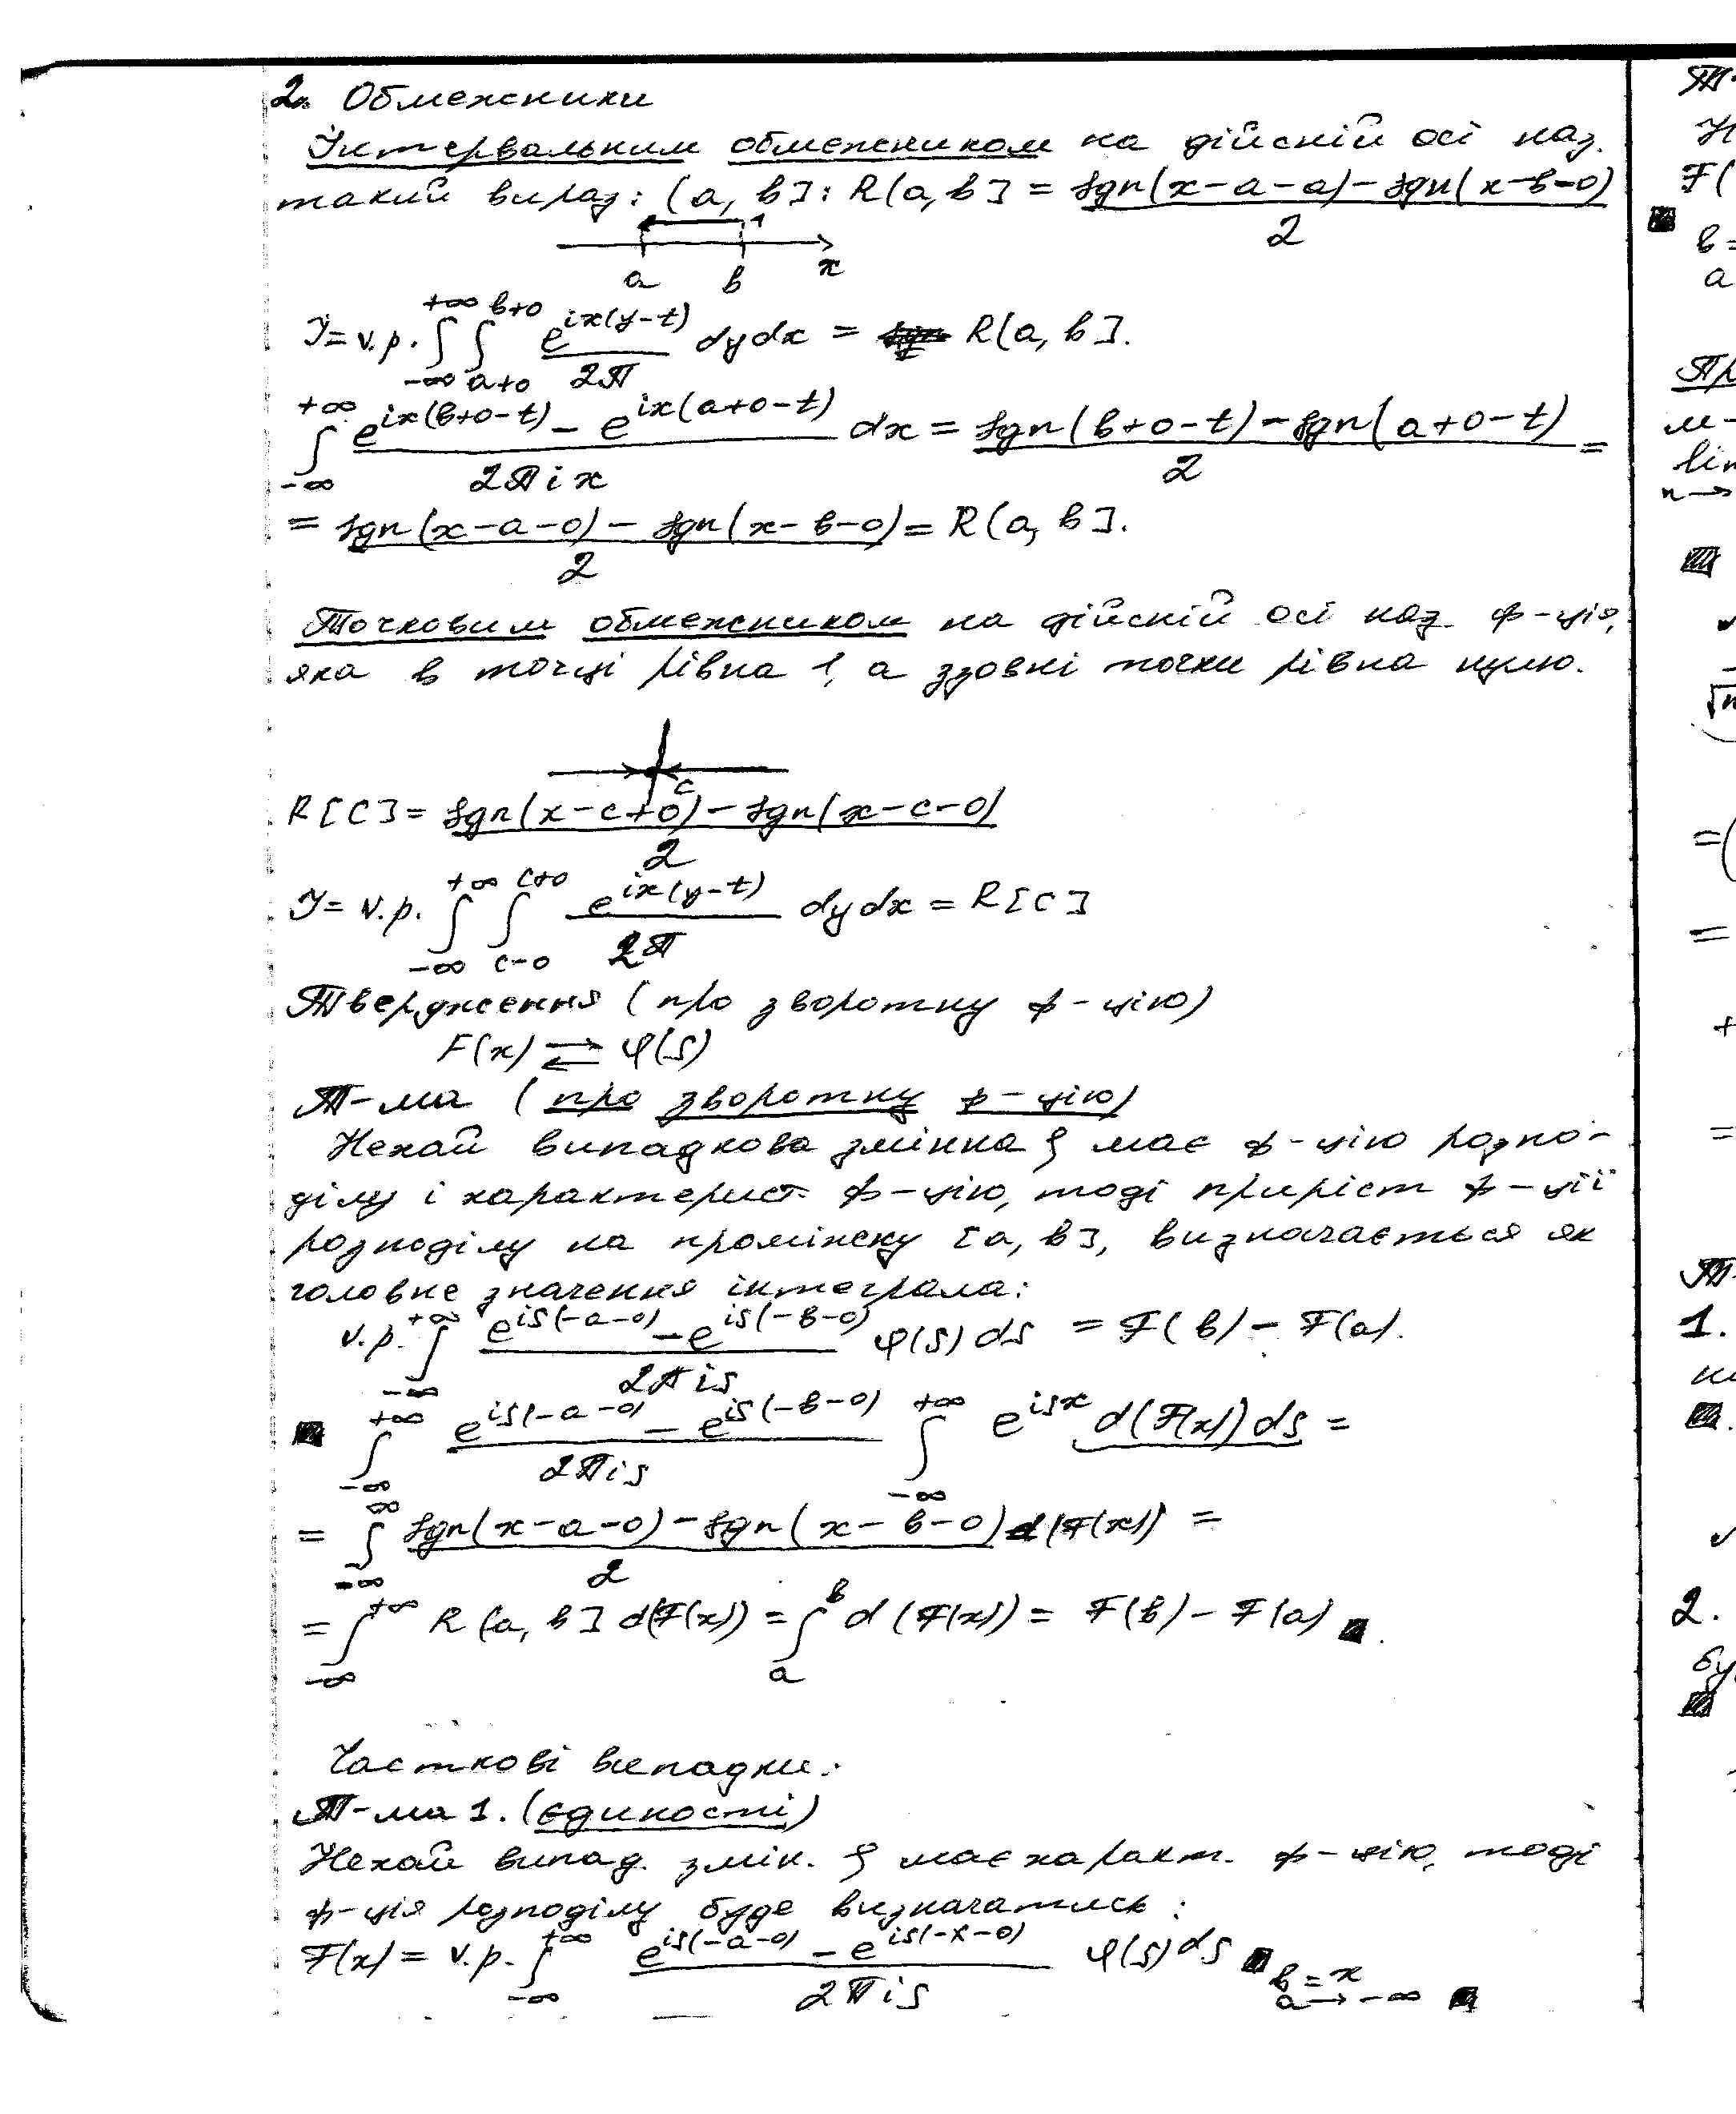 2. Обмежники
Інтервальним обмежником на дійсній осі наз.
такий вираз: (a, b]: R(a, b] = (sgn(x-a-a) - sgn(x-b-0))/2
1
a b x
J = v.p. ∫_{-∞}^{+∞} ∫_{a+0}^{b+0} e^{ix(y-t)}/2π dydx = R(a, b].
∫_{-∞}^{+∞} (e^{ix(b+0-t)} - e^{ix(a+0-t)})/(2πix) dx = (sgn(b+0-t) - sgn(a+0-t))/2 =
= (sgn(x-a-0) - sgn(x-b-0))/2 = R(a, b].
Точковим обмежником на дійсній осі наз. ф-ція,
яка в точці рівна 1, а ззовні точки рівна нулю.
c
R[C] = (sgn(x-c+0) - sgn(x-c-0))/2
J = v.p. ∫_{-∞}^{+∞} ∫_{c-0}^{c+0} e^{ix(y-t)}/2π dydx = R[C]
Твердження (про зворотну ф-цію)
F(x) ⇄ φ(s)
Т-ма (про зворотну ф-цію)
Нехай випадкова змінна ξ має ф-цію розпо-
ділу і характерист. ф-цію, тоді приріст ф-ції
розподілу на проміжку [a, b], визначається як
головне значення інтеграла:
v.p. ∫_{-∞}^{+∞} (e^{is(-a-0)} - e^{is(-b-0)})/(2πis) φ(s) ds = F(b) - F(a).
■ ∫_{-∞}^{+∞} (e^{is(-a-0)} - e^{is(-b-0)})/(2πis) ∫_{-∞}^{+∞} e^{isx} d(F(x)) ds =
= ∫_{-∞}^{∞} (sgn(x-a-0) - sgn(x-b-0))/2 d(F(x)) =
= ∫_{-∞}^{+∞} R(a, b] d(F(x)) = ∫_{a}^{b} d(F(x)) = F(b) - F(a) ■.
Часткові випадки:
Т-ма 1. (єдиності)
Нехай випад. змін. ξ має характ. ф-цію, тоді
ф-ція розподілу буде визначатись:
F(x) = v.p. ∫_{-∞}^{+∞} (e^{is(-a-0)} - e^{is(-x-0)})/(2πis) φ(s) ds ■ b = x
a → -∞ ■